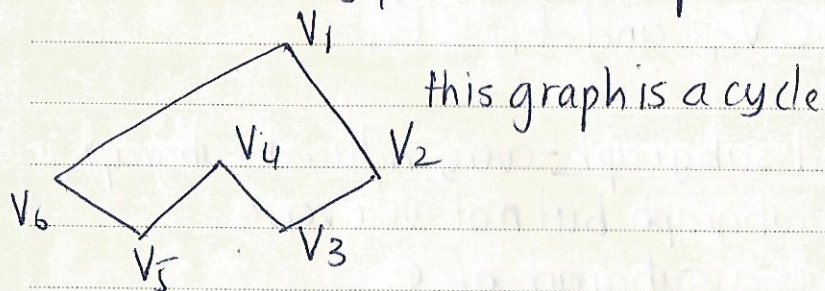 V1
this graph is a cycle
V4
V2
V6
V5
V3